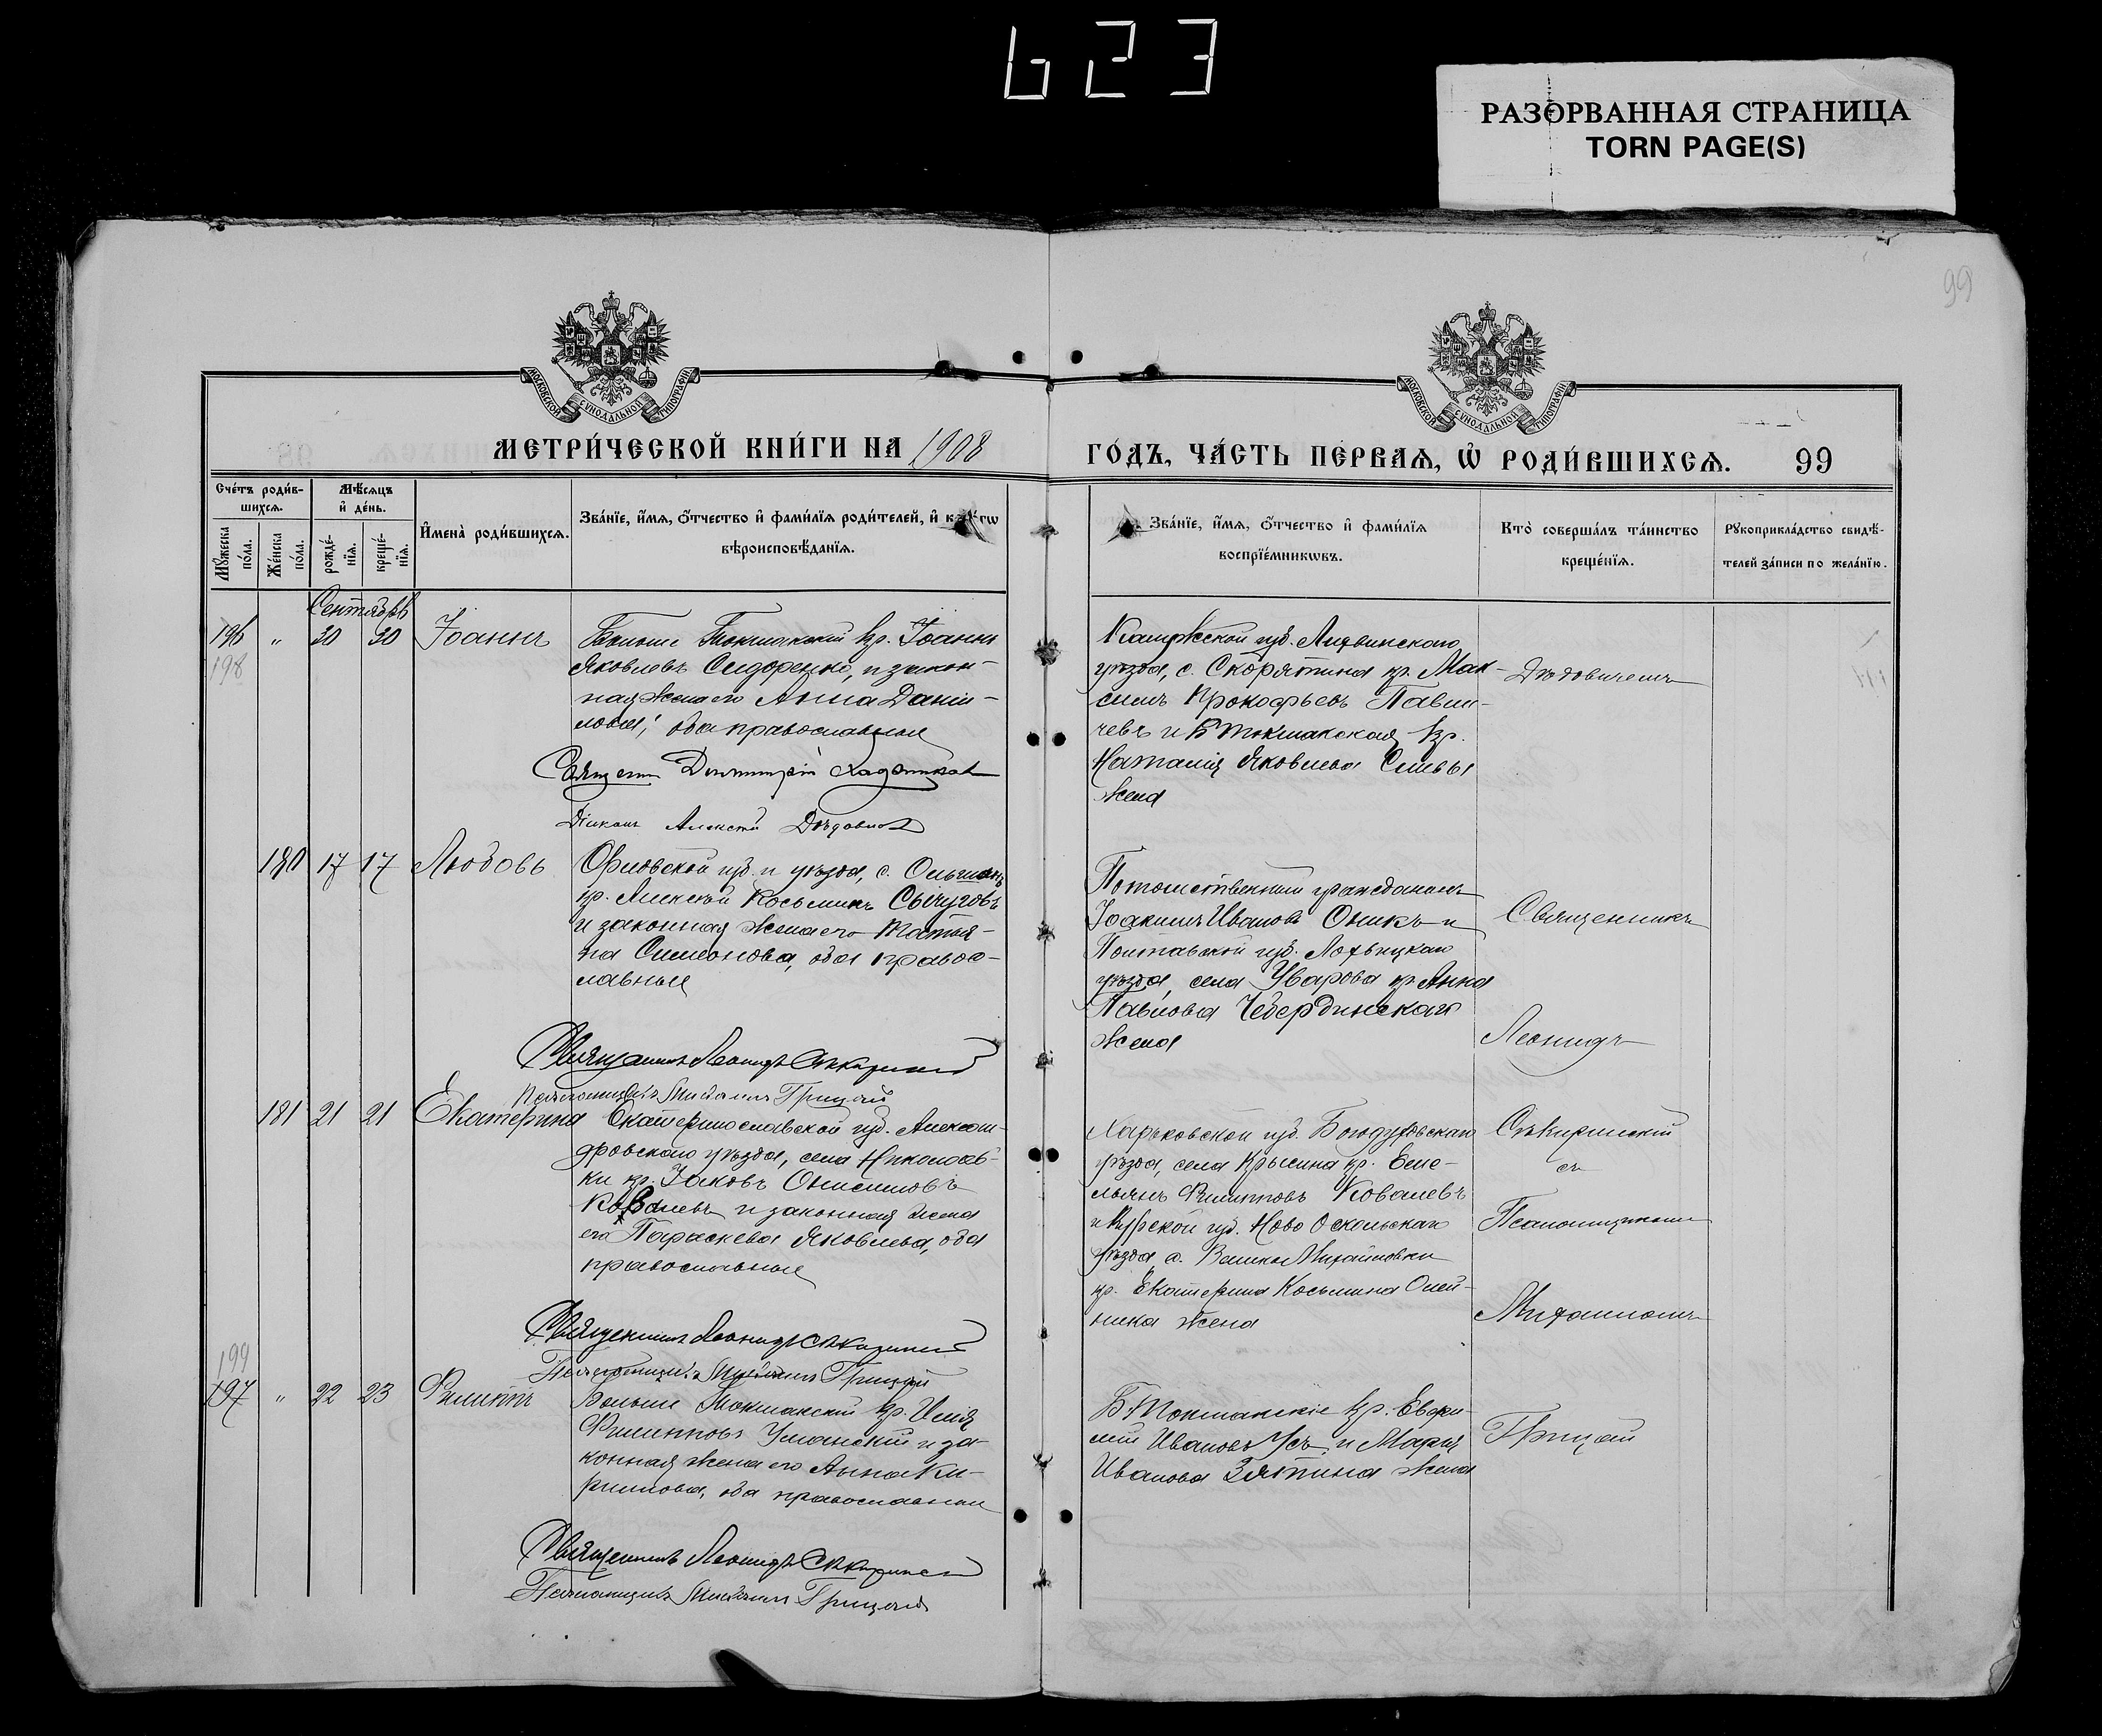 623
РАЗОРВАННАЯ СТРАНИЦА
TORN PAGE(S)
99
МОСКОВСКОЙ СѴНОДАЛЬНОЙ ТИПОГРАФІИ
МОСКОВСКОЙ СѴНОДАЛЬНОЙ ТИПОГРАФІИ
МЕТРИ́ЧЕСКОЙ КНИ́ГИ НА 1908
ГО́ДЪ, ЧА́СТЬ ПЕ́РВАѦ, Ѽ РОДИ́ВШИХСѦ. 99
Сче́тъ роди́в-
шихсѧ.
Мѣ́сѧцъ
и҆ де́нь.
Мꙋ́жеска
по́ла.
Же́нска
по́ла.
рожде́-
нїѧ.
креще́-
нїѧ.
И҆мена̀ роди́вшихсѧ.
Зва́нїе, и҆́мѧ, ѻ҆́тчество и҆ фами́лїѧ роди́телей, и҆ как҆́гѡ
вѣроисповѣ́данїѧ.
Зва́нїе, и҆́мѧ, ѻ҆́тчество и҆ фами́лїѧ
воспрїе́мникѡвъ.
Кто̀ соверша́лъ та́инство
креще́нїѧ.
Рꙋкоприкла́дство свидѣ́-
телей за́писи по жела́нїю.
Сентябрь
196 " 20 20 Іоаннъ
198
Больше Токмакскій кр. Іоаннъ
Яковлевъ Сидоренко, и закон-
ная жена его Анна Дани-
лова, оба православные
Священ. Димитрій
Діаконъ Алексѣй
Калужской губ. Лихвинскаго
уѣзда, с. Скорятина кр. Мак-
симъ Прокофьевъ Павли-
чевъ и Б Токмакская кр.
Наталія Яковлева Сливы
жена
180 17 17 Любовь
Орловской губ. и уѣзда, с. Ольшанъ
кр. Алексѣй Косьминъ Сычуговъ
и законная жена его Татья-
на Симеонова, оба право-
славные
Священникъ Леонидъ Сѣкиринскій
Псаломщикъ Михаилъ Грицай
Потомственный гражданинъ
Іоакимъ Ивановъ Оникъ и
Полтавской губ. Лохвицкаго
уѣзда, села Уварова кр Анна
Павлова Чебердинскаго
жена
Священникъ
Леонидъ
181 21 21 Екатерина
Екатеринославской губ. Алексан-
дровскаго уѣзда, села Николаев-
ки кр. Іаковъ Онисимовъ
Ковалевъ и законная жена
его Параскева Яковлева, оба
православные
Священникъ Леонидъ Сѣкиринскій
Псаломщикъ Михаилъ Грицай
Харьковской губ. Богодуховскаго
уѣзда, села Крысина кр. Еме-
льянъ Филипповъ Ковалевъ
и Курской губ. Ново Оскольскаго
уѣзда с. Велико Михайловки
кр. Екатерина Косьмина Олей-
ника жена
Сѣкиринскій
съ
Псаломщикомъ
Михаиломъ
199
197 " 22 23 Филиппъ
Больше Токмакскій кр. Илія
Филипповъ Уманскій и за-
конная жена его Анна Ки-
риллова, оба православные
Священникъ Леонидъ Сѣкиринскій
Псаломщикъ Михаилъ Грицай
Б. Токмакскіе кр. Евфи-
мій Ивановъ Усъ, и Марія
Иванова Зятина жена
Грицай